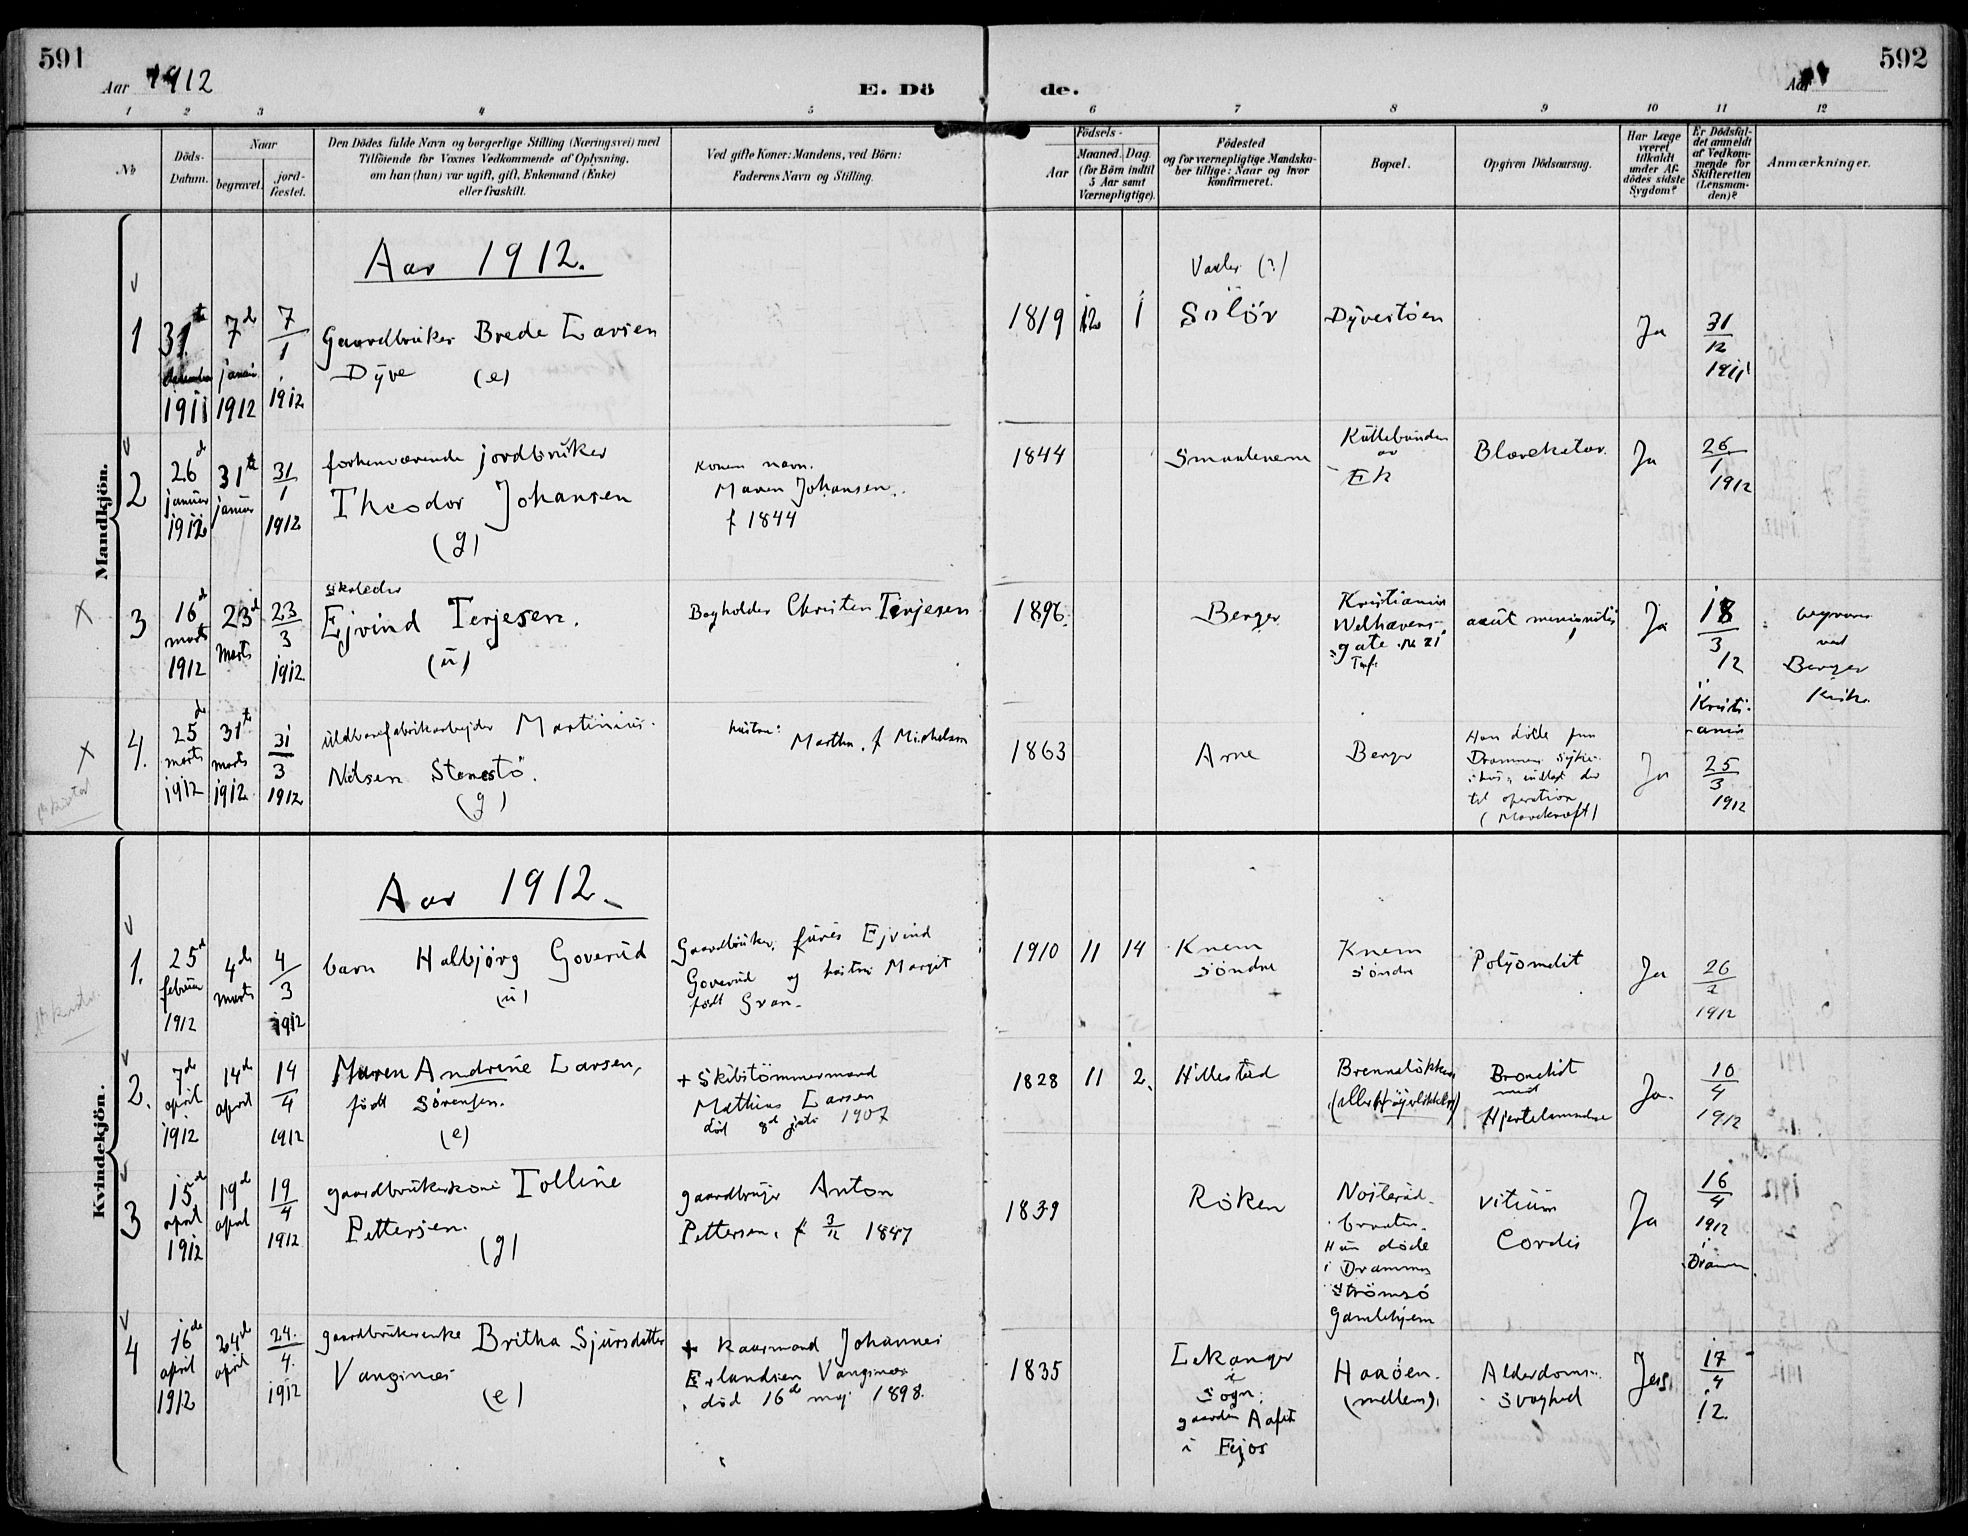 591
592
Aar 1912
E. Döde.
Aar
1 2 3 4 5 6 7 8 9 10 11 12
No
Döds-
Datum.
Naar
begravet.
jord-
fæstet.
Den Dödes fulde Navn og borgerlige Stilling (Næringsvei) med
Tilföiende for Voxnes Vedkommende af Oplysning,
om han (hun) var ugift, gift, Enkemand (Enke)
eller fraskilt.
Ved gifte Koner: Mandens, ved Börn:
Faderens Navn og Stilling.
Födsels-
Aar
Maaned. Dag.
(for Börn indtil
5 Aar samt
Værnepligtige).
Födested
og for værnepligtige Mandska-
ber tillige: Naar og hvor
konfirmeret.
Bopæl.
Opgiven Dödsaarsag.
Har Læge
været
tilkaldt
under Af-
dödes sidste
Sygdom?
Er Dödsfal-
det anmeldt
af Vedkom-
mende for
Skifteretten
(Lensman-
den)?
Anmærkninger.
Mandkjön.
Aar 1912.
1
31te
december
1911
7de
januar
1912
7/1
1912
Gaardbruker Brede Larsen
Dyve (e)
1819 12 1
Vaaler (?)
Solör
Dyvestöen
Ja
31/12
1911
2
26de
januar
1912
31te
januar
31/1
1912
forhenværende jordbruker
Theodor Johansen
(g)
konens navn.
Maren Johansen.
f 1844
1844
Smaalenene
Kullebunden
av
Ek
Blærekatar.
Ja
26/1
1912
X
3
16de
marts
1912
23de
Marts
23/3
1912
Skoleelev
Ejvind Terjesen.
(u)
Bogholder Christen Terjesen
1896.
Berger
Kristiania
Welhavens-
gate No 21
acut meningitis
Ja
18/3
12
i
Kristi-
ania
begraven
ved
Berger
Kirke.
X
4.
25de
marts
1912
31te
marts
1912
31/3
1912
uldvarefabrikarbejder Martinius
Nilsen Stenestö.
(g)
hustru:
Martha. f Mickelsen
1863
Arne
Berger
Han döde paa
Drammens syke-
hus, indlagt der
til operation
(Mavekræft)
Ja
25/3
1912
Kvindekjön.
Aar 1912.
1.
25de
februar
1912
4de
marts
4/3
1912
barn Halbjørg Goverud
(u)
Gaardbruker, furer Ejvind
Goverud og hustru Margit
født Gran.
1910 11 14
Knem
söndre
Knem
söndre
Polyomelit
Ja
26/2
1912
2.
7de
april
1912
14de
april
14/4
1912
Maren Andrine Larsen,
født Sörensen.
(e)
+ Skibstömmermand
Mathias Larsen
död 8de 1907
1828 11 2.
Hillestad
Brennelökken
Bronchit
med
Hjertelammelse
Ja.
10/4
1912
3
15de
april
1912
19de
april
19/4
1912
gaardbrukerkone Tolline
Pettersen.
(g)
gaardbruger Anton
Pettersen, f 3/12 1847
1839
Röken
Nosterud-
braaten.
Hun döde
i Drammen
Strömsö
Gamlehjem
vitium
Cordis
Ja
16/4
1912
i
Drammen
4
16de
april
1912
24de
april
24/4.
1912
gaardbrukerenke Britha Sjursdatter
Vangsnes
(e)
+ kaarmand Johannes
Erlandsen Vangsnes
död 16de maj 1898.
1835
Lekanger
i
Sogn:
gaarden
i Fejos
Haaöen.
(mellem).
Alderdoms-
svaghed
Ja
17/4
12